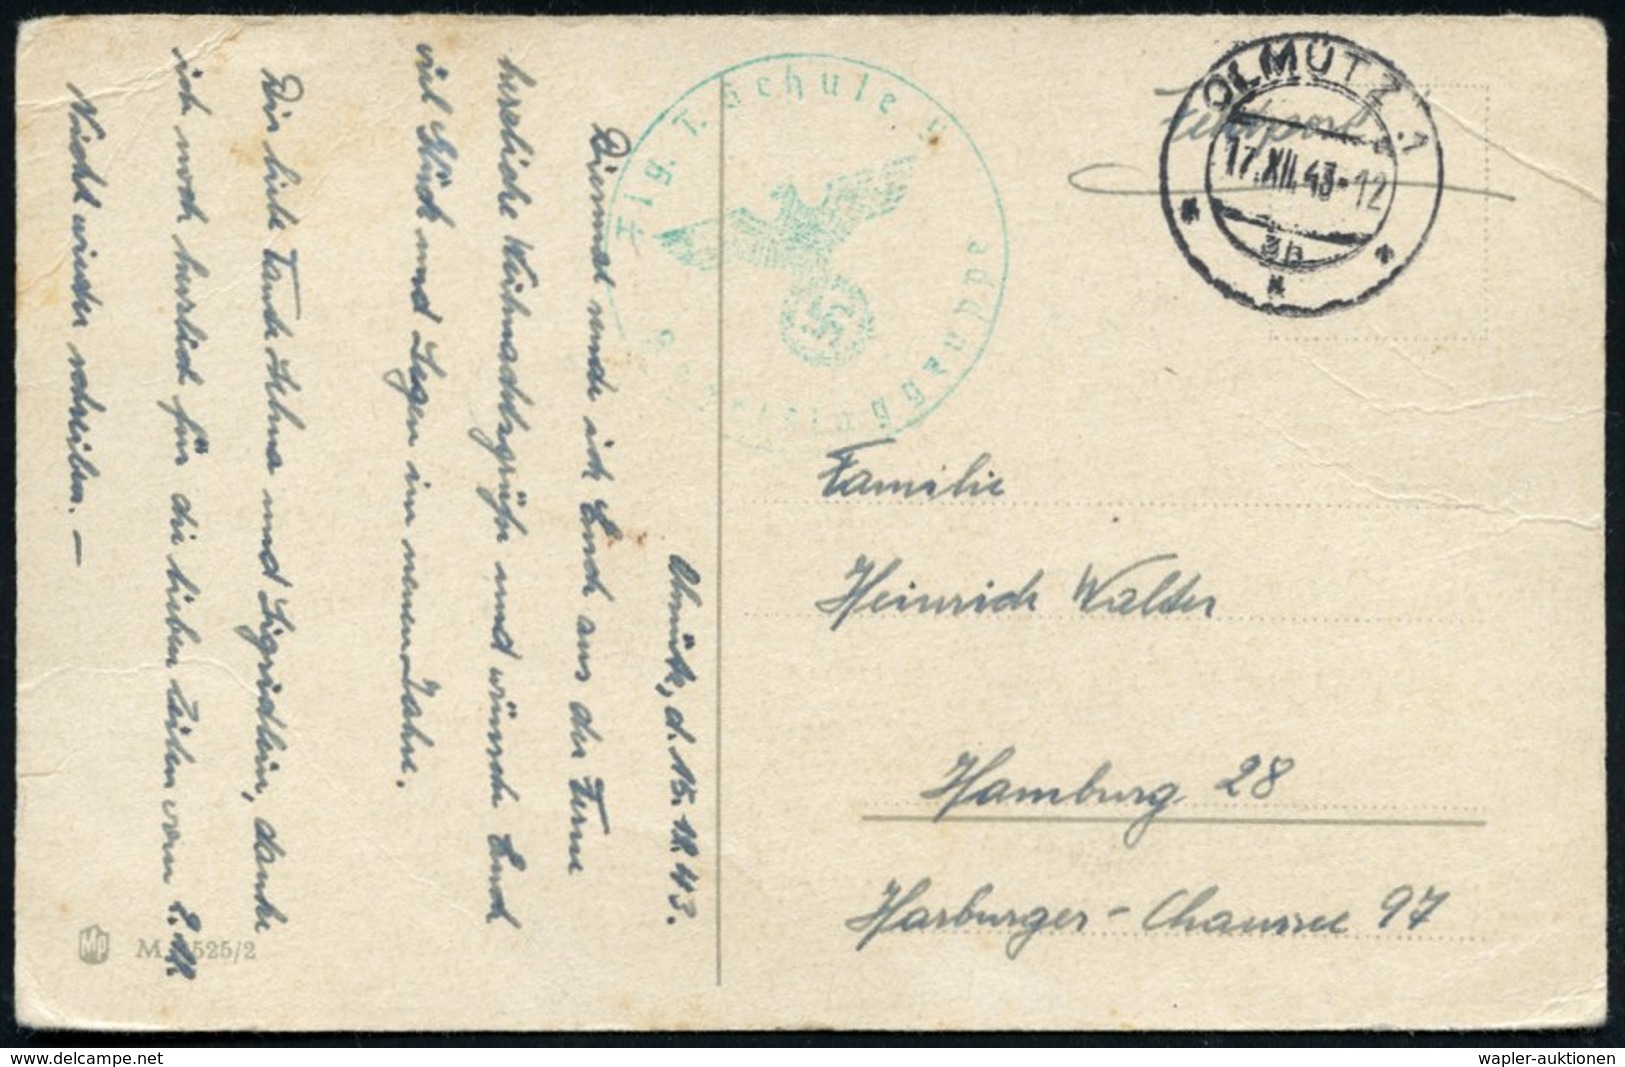 Olmütz, d. 15. XII. 43.
Diesmal sende ich Euch aus der Ferne
herzliche Weihnachtsgrüße und wünsche Euch
viel Glück und Segen im neuen Jahre.
Dir liebe Tante Selma und Sigridlein, danke
ich noch herzlich für die lieben Zeilen vom
Nicht wieder schreiben. —
Flg. T. Schule
Feldpost
OLMÜTZ 1
17.XII.43-12
Familie
Heinrich Walter
Hamburg 28
Harburger-Chaussee 97
MP
525/2
delcampe.net
wapler-auktionen